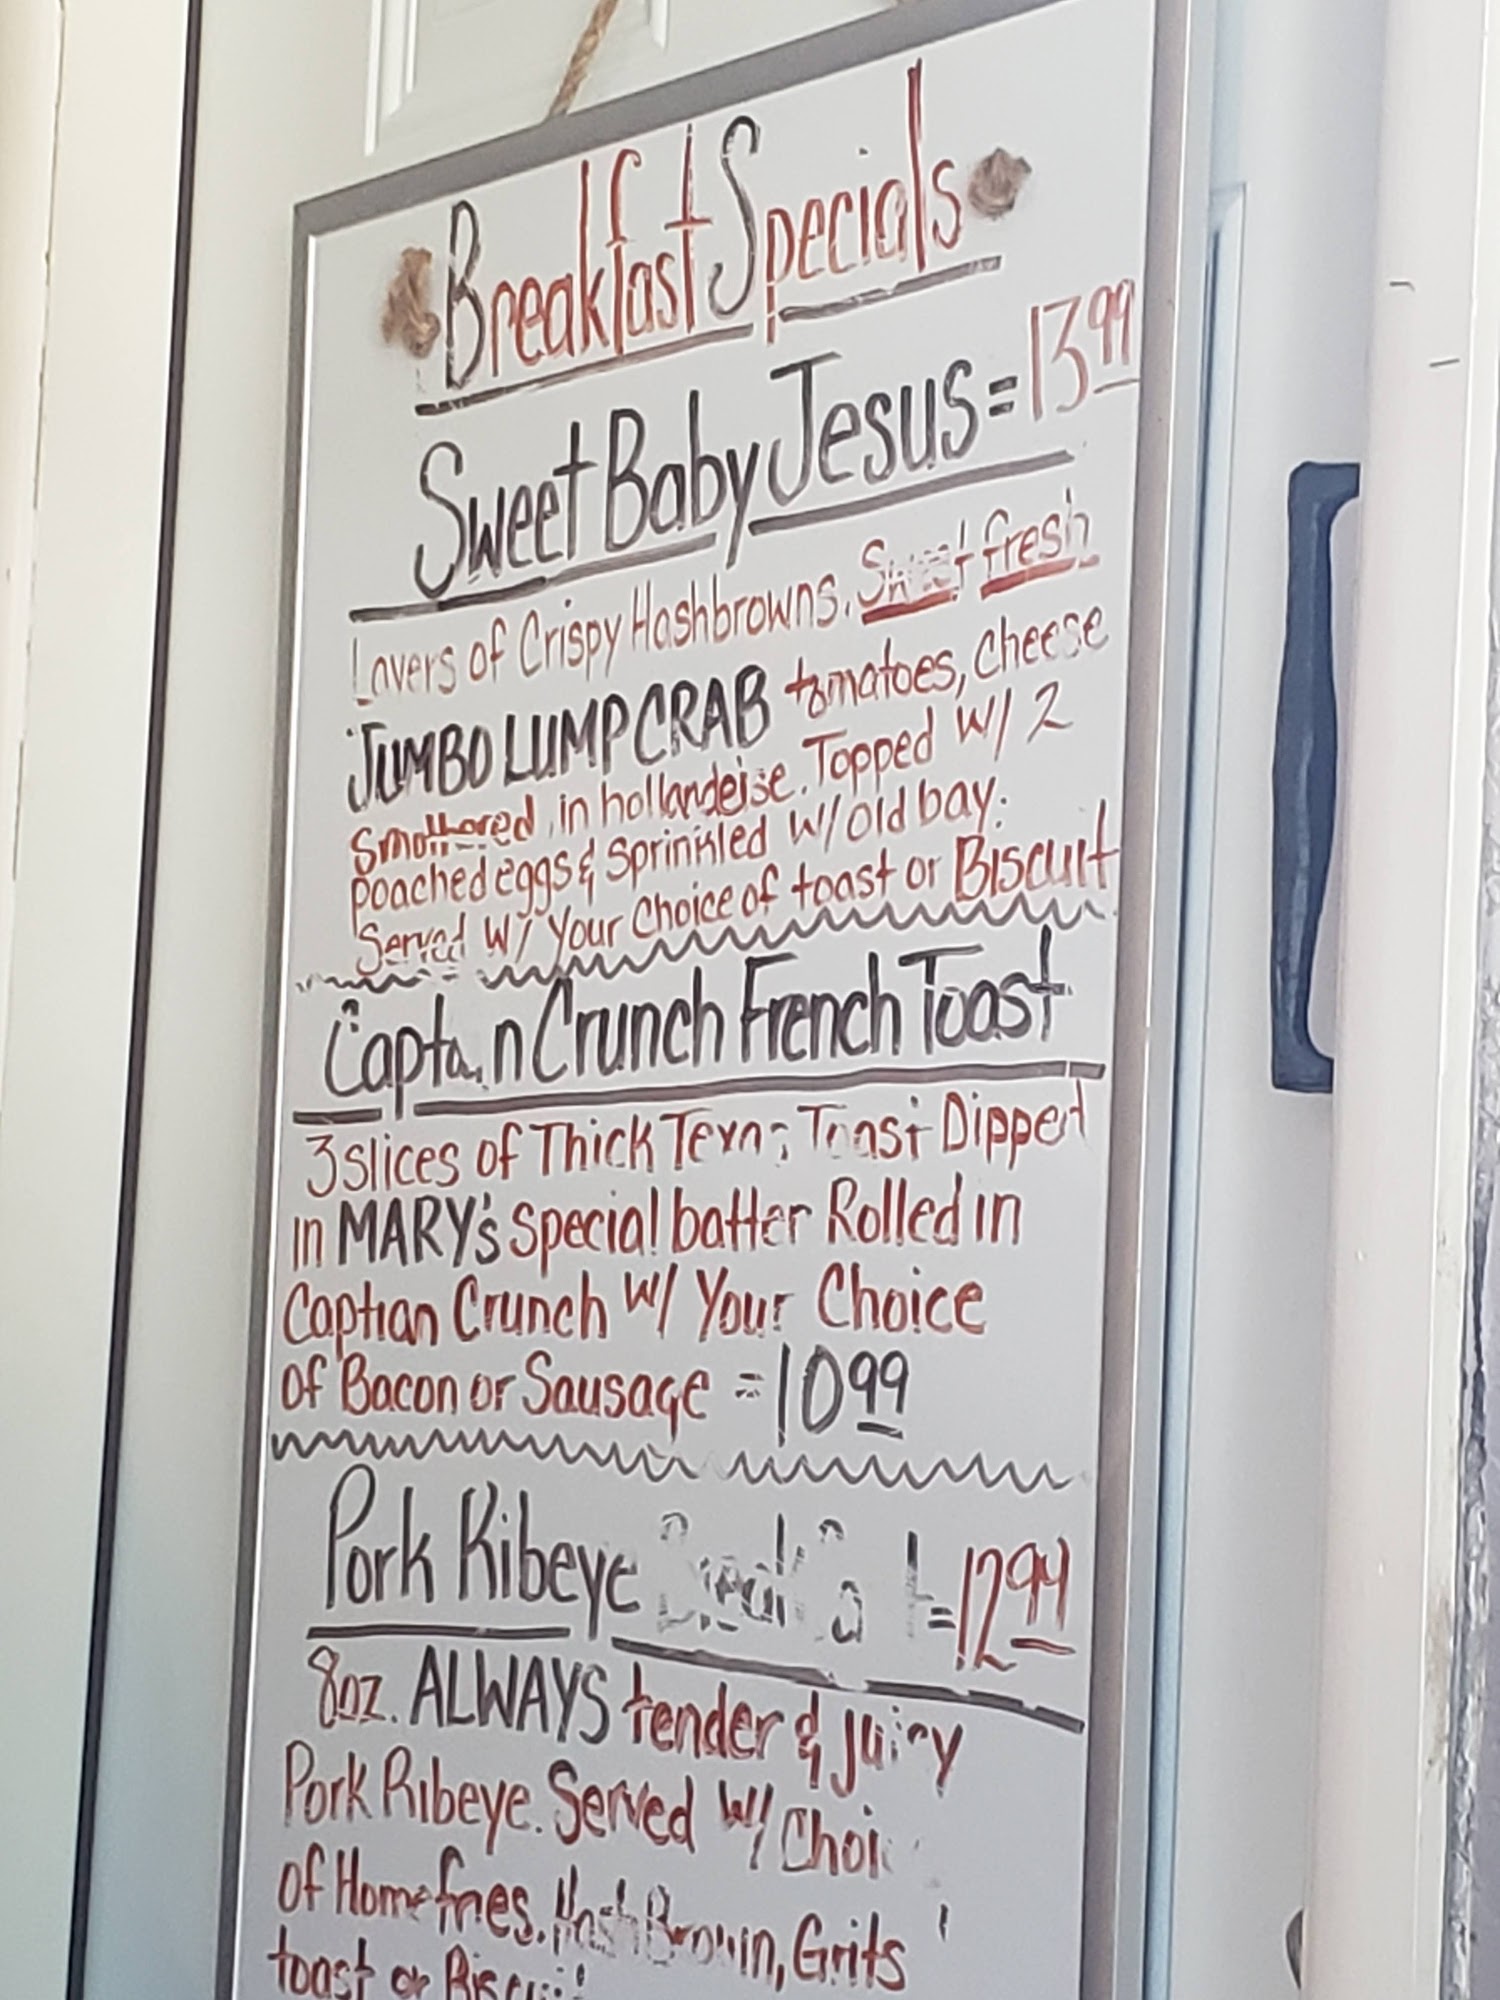 Breakfast Specials
Sweet Baby Jesus = 13.99
Layers of Crispy Hashbrowns. Sweet fresh
JUMBO LUMP CRAB tomatoes, cheese
Smothered in hollandeise. Topped w/ 2
poached eggs & sprinkled w/ old bay.
Served w/ Your Choice of toast or Biscuit
Captain Crunch French Toast
3 slices of Thick Texas Toast Dipped
in MARY's special batter Rolled in
Captian Crunch w/ Your Choice
of Bacon or Sausage = 10.99
Pork Ribeye = 12.99
8oz. ALWAYS tender & juicy
Pork Ribeye. Served w/ Choi
of Homefries. HashBrown, Grits
toast or Biscuit